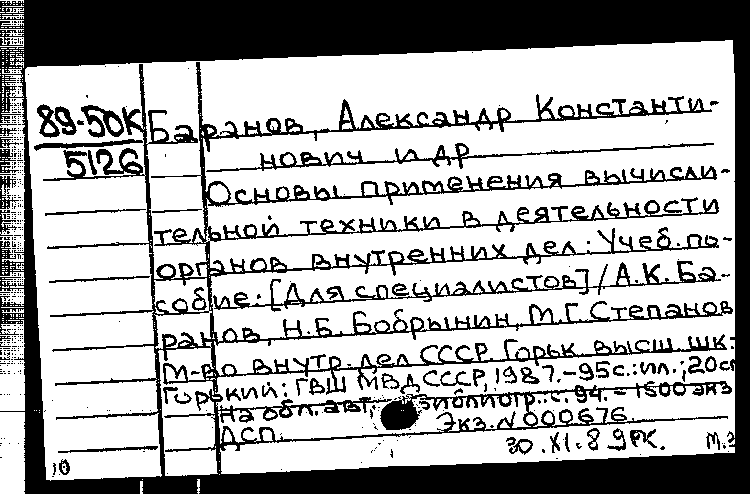 89-50К
5126
Баранов, Александр Константи-
нович и др
Основы применения вычисли-
тельной техники в деятельности
органов внутренних дел: Учеб. по-
собие: [Для специалистов] / А.К. Ба-
ранов, Н.Б. Бобрынин, М.Г. Степанов
М-во внутр. дел СССР. Горьк высш. шк.
Горький: ГВШ МВД СССР, 1987.-95с.:ил.;20см
На обл. авт. Библиогр.: с. 94. - 1500 экз
Экз. N 000676.
ДСП.
30.XI.89 РК.